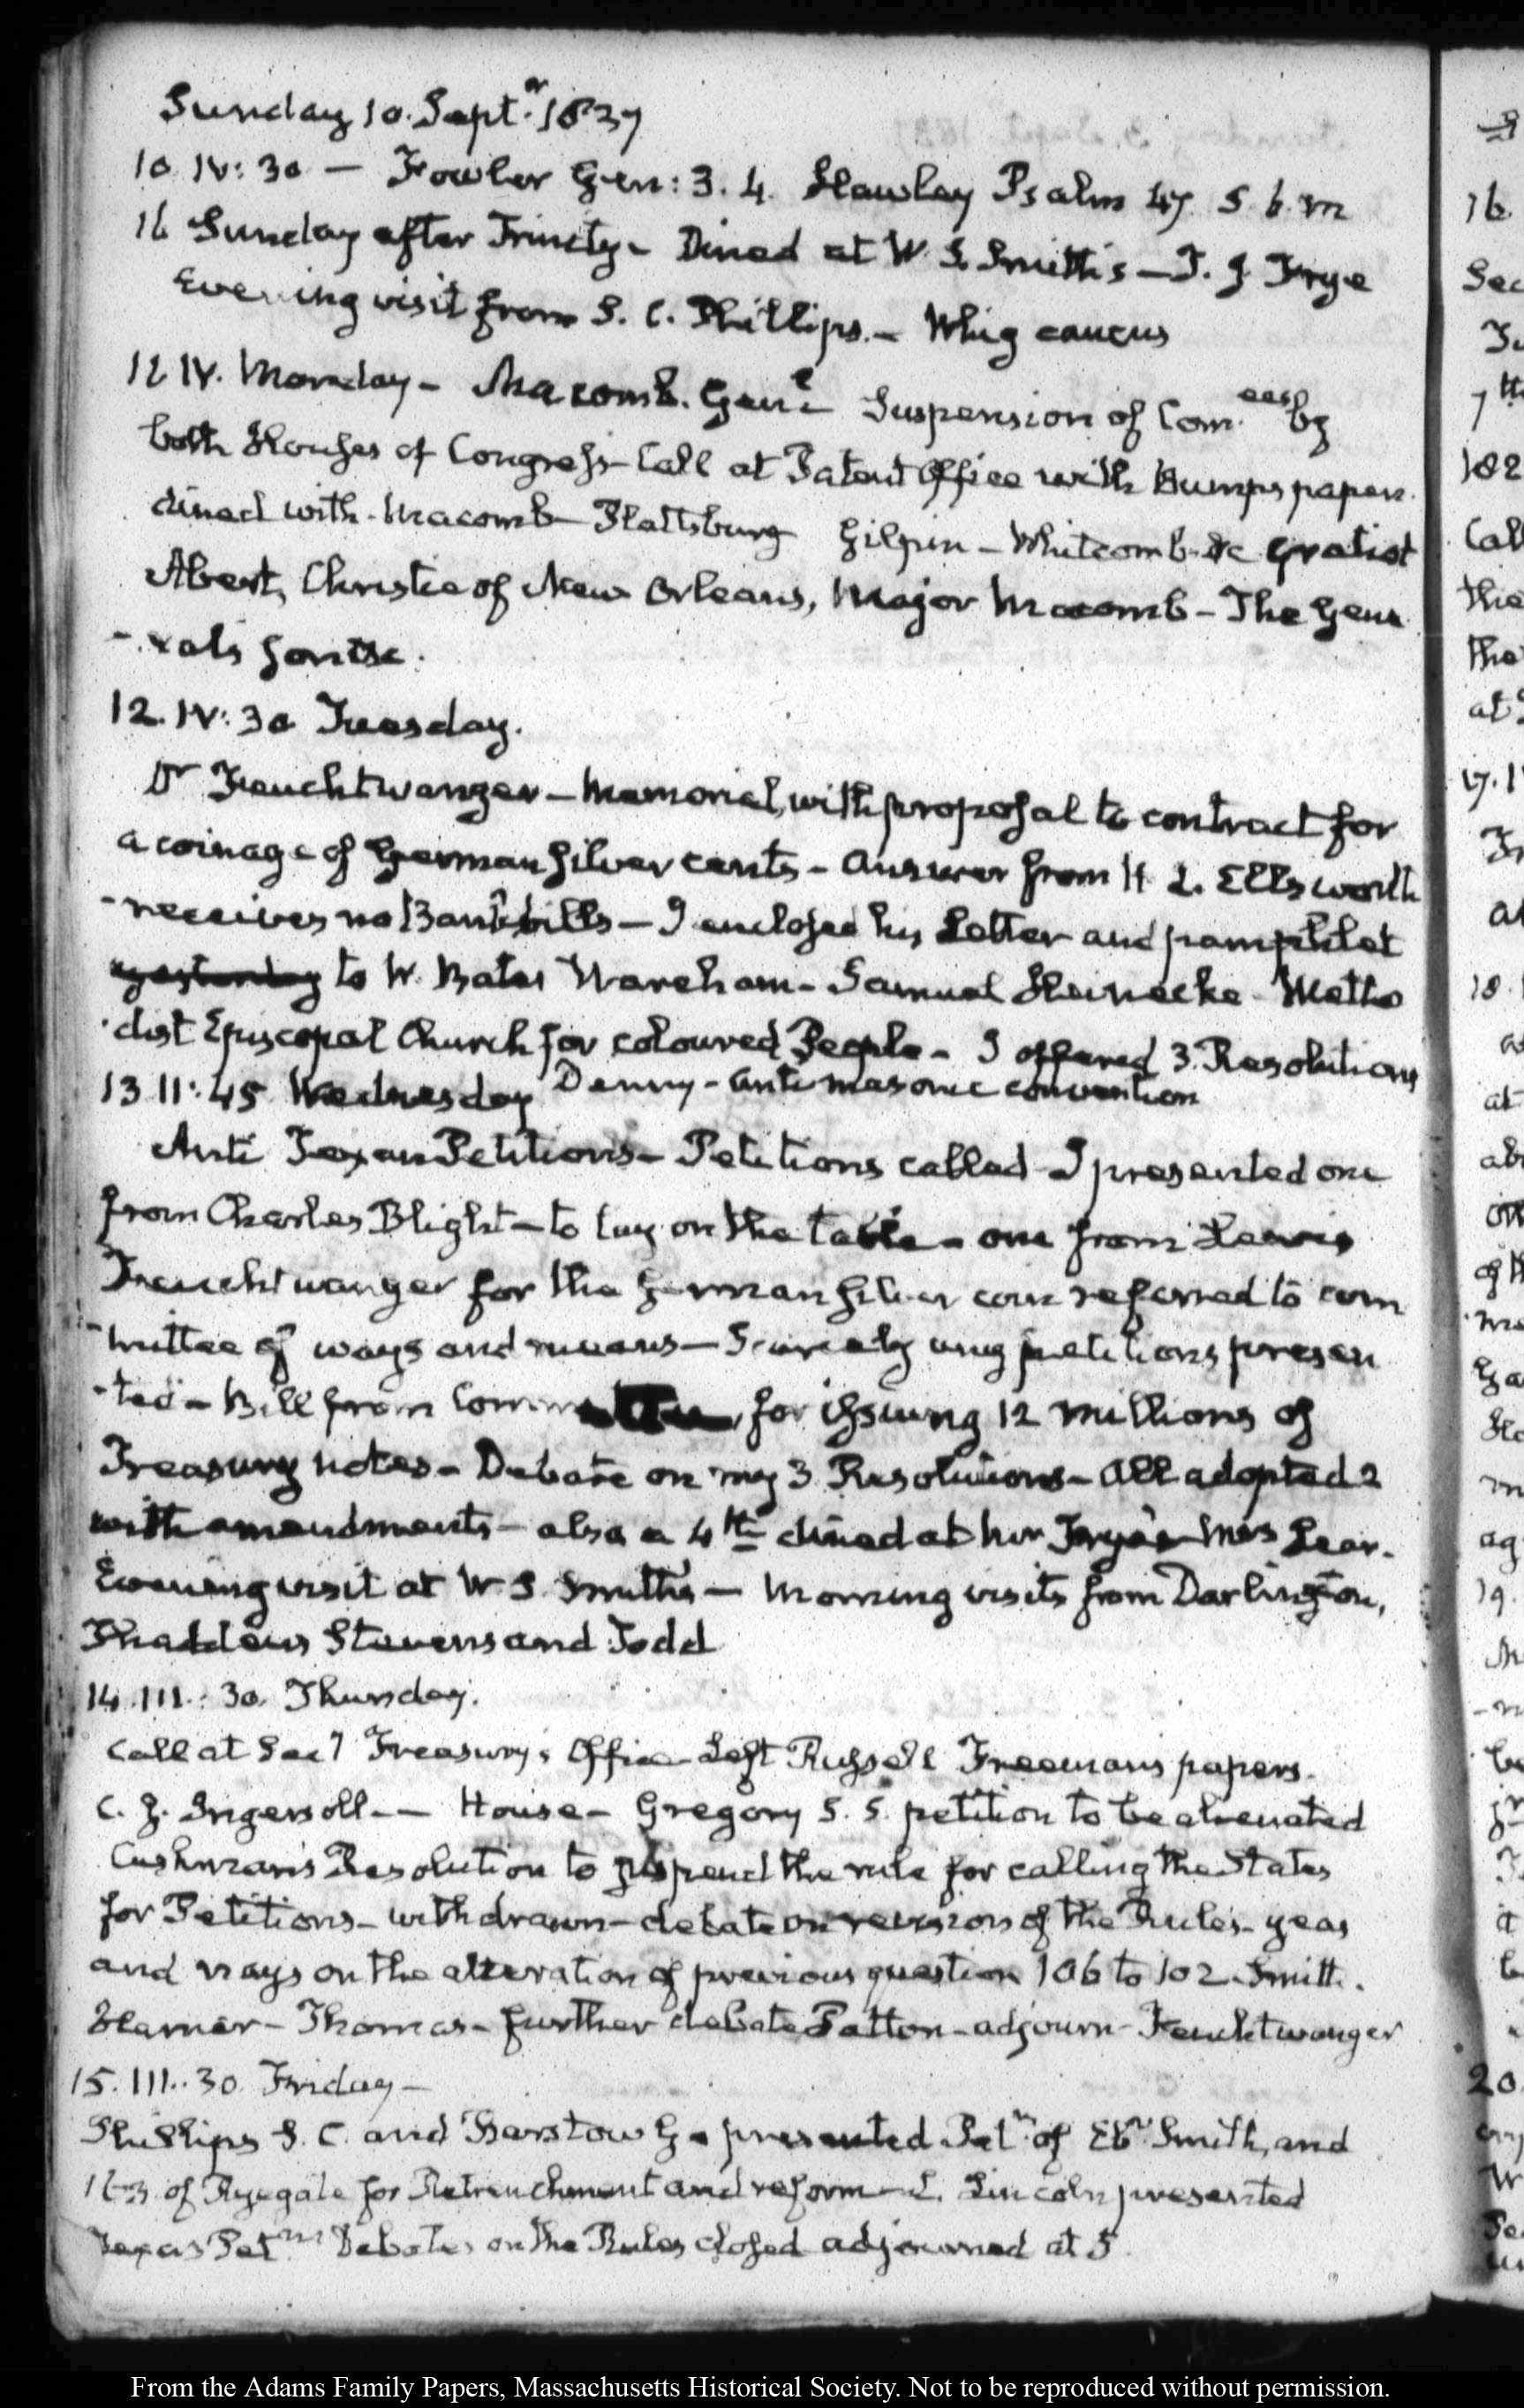 Sunday 10. Sept.r 1837
10 IV: 30 — Fowler Gen: 3. 4. Hawley Psalm 47. 5. 6. m
16 Sunday after Trinity - Dined at W. S. Smith's — T. J. Frye
Evening visit from S. C. Phillips. - Whig caucus
11 IV. Monday - Macomb. Gen.l Suspension of Com.ees by
both Houses of Congress - Call at Patent Office with Bumps papers.
dined with Macomb - Plattsburg Gilpin - Whitcomb - &c Gratiot
Abert, Christie of New Orleans, Major Macomb - The Gene
-rals
12. IV: 30 Tuesday.
Dr Feuchtwanger - Memorial, with proposal to contract for
a coinage of German silver cents - Answer from H. L. Ellsworth
- receives no Bank bills - I enclosed his Letter and pamphlet
yesterday to W. Bates Wareham - Samuel Heinecke Metho
dist Episcopal Church for coloured People - I offered 3. Resolutions
13 II: 45 Wednesday Denny - Antimasonic convention
Anti Texan Petitions - Petitions called - I presented one
from Charles Blight - to lay on the table - one from Lewis
Feuchtwanger for the German silver coin referred to com
-mittee of ways and means - Scarcely any petitions presen
-ted - Bill from Committee, for issuing 12 millions of
Treasury notes - Debate on my 3 Resolutions - All adopted 2
with amendments - also a 4th dined at Mr Frye's Mrs Lear.
Evening visit at W. S. Smith's — Morning visits from Darlington,
Thaddeus Stevens and Todd
14. III: 30. Thursday.
Call at Sec.y Treasury's Office - Left Russell Freeman's papers.
C. J. Ingersoll — House - Gregory S. S. petition to be alienated
Cushman's Resolution to suspend the rule for calling the States
for Petitions - withdrawn - debate on revision of the Rules - yeas
and nays on the alteration of previous question 106 to 102 Smith.
Hamer - Thomas - further debate Patton - adjourn - Feuchtwanger
15. III: 30. Friday -
Phillips S. C. and Barstow G - presented Pet.n of Eb.r Smith, and
163 of Ryegate for Retrenchment and reform - L. Lincoln presented
Texas Pet.ns Debates on the Rules closed adjourned at 5
From the Adams Family Papers, Massachusetts Historical Society. Not to be reproduced without permission.